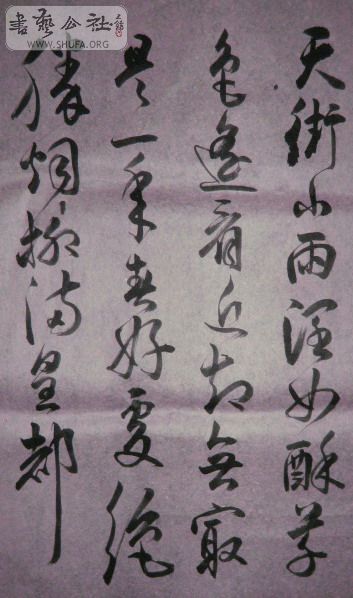 天街小雨潤如酥草
色遙看近却無寂
是一年春好處絕
勝烟柳滿皇都
書藝公社
WWW.SHUFA.ORG